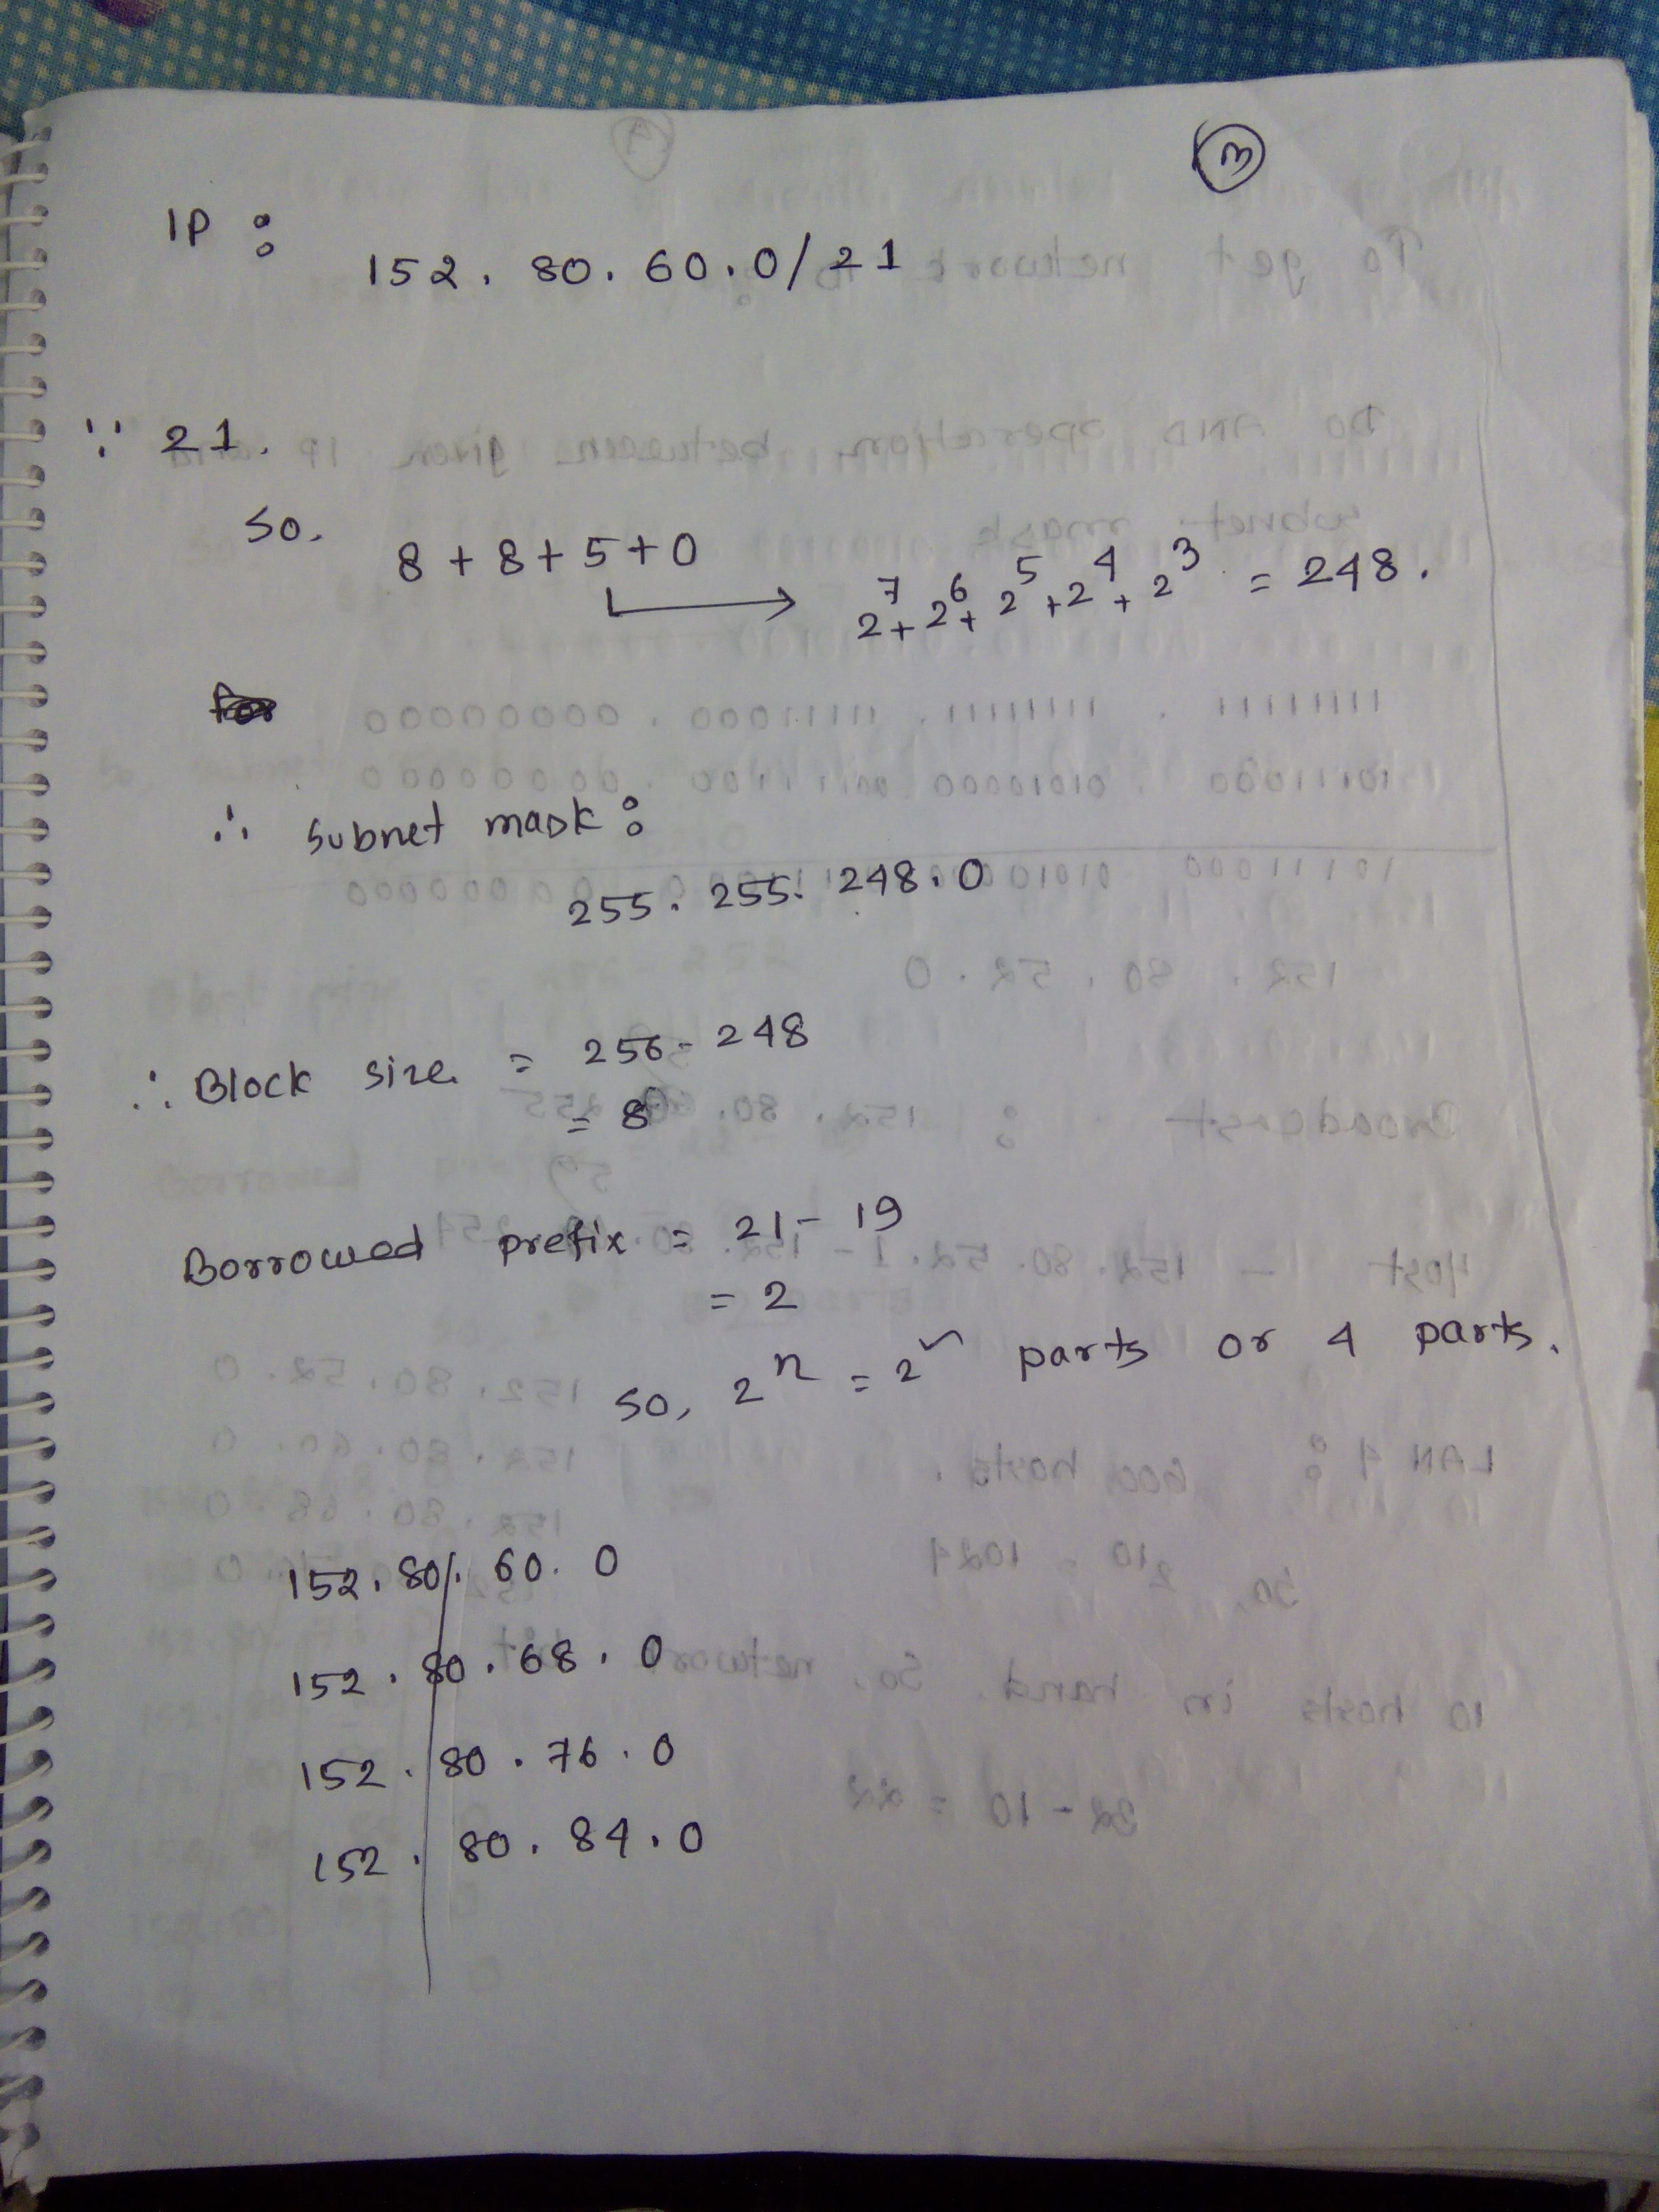 3
IP :
152. 80. 60. 0/21
∵ 21.
So.
8 + 8 + 5 + 0
2⁷ + 2⁶ + 2⁵ + 2⁴ + 2³ = 248.
∴ Subnet mask :
255. 255. 248. 0
∴ Block size = 256 - 248
= 8
Borrowed prefix = 21 - 19
= 2
So, 2ⁿ = 2² parts or 4 parts.
152. 80. 60. 0
152. 80. 68. 0
152. 80. 76. 0
152. 80. 84. 0